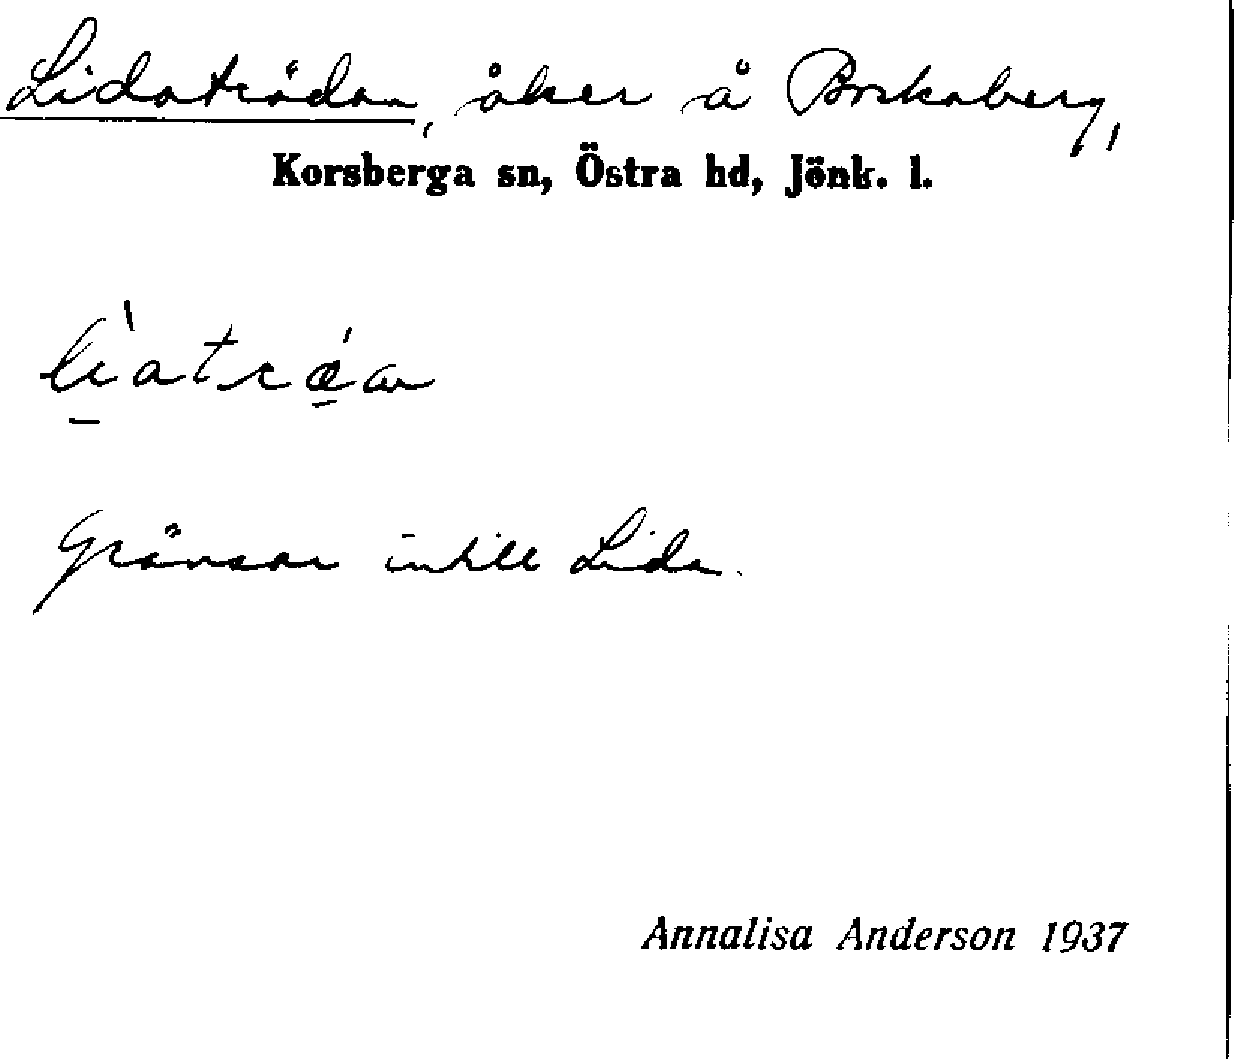 Lidaträdan, åker å Borkaberg,
Korsberga sn, Östra hd, Jönk. l.
Gränsar intill Lida.
Annalisa Anderson 1937